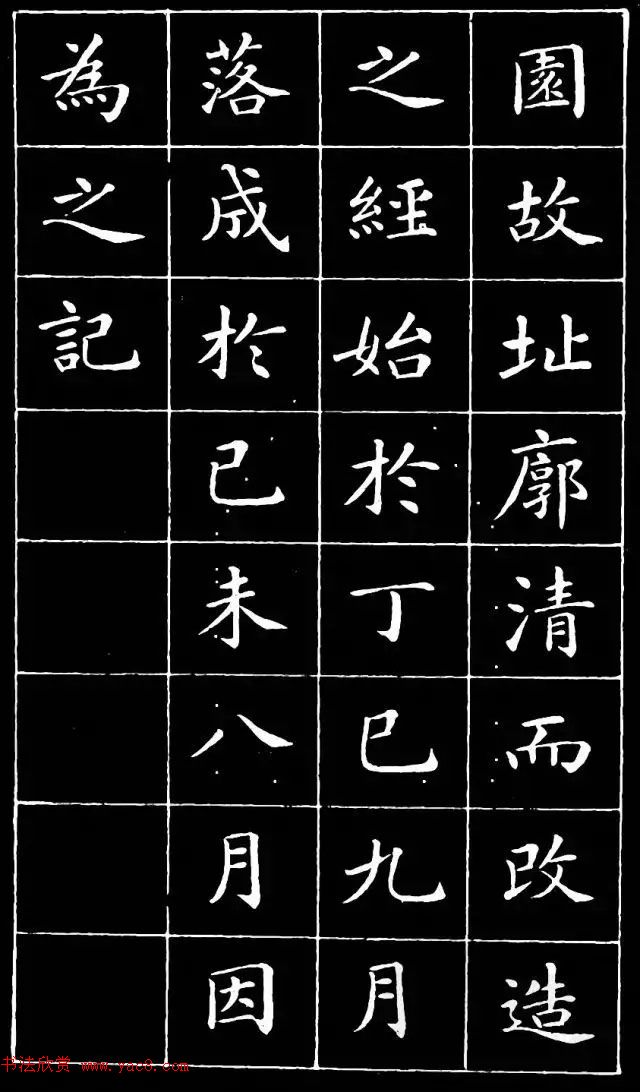 園故址廓清而改造
之經始於丁巳九月
落成於己未八月因
為之記
书法欣赏 www.yac8.com